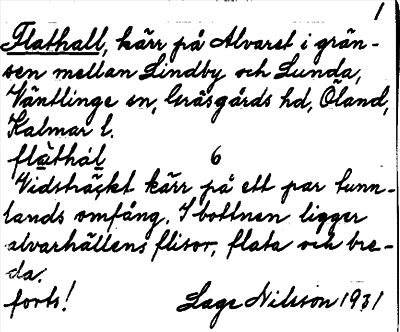 1
Flathall, kärr på Alvaret i grän-
sen mellan Lindby och Lunda,
Väntlinge sn, Gräsgårds hd, Öland,
Kalmar l.
flàthàl 6
Vidsträckt kärr på ett par tunn-
lands omfång. I bottnen ligger
alvarhällens flisor, flata och bre-
da.
forts! Lage Nilsson 1931